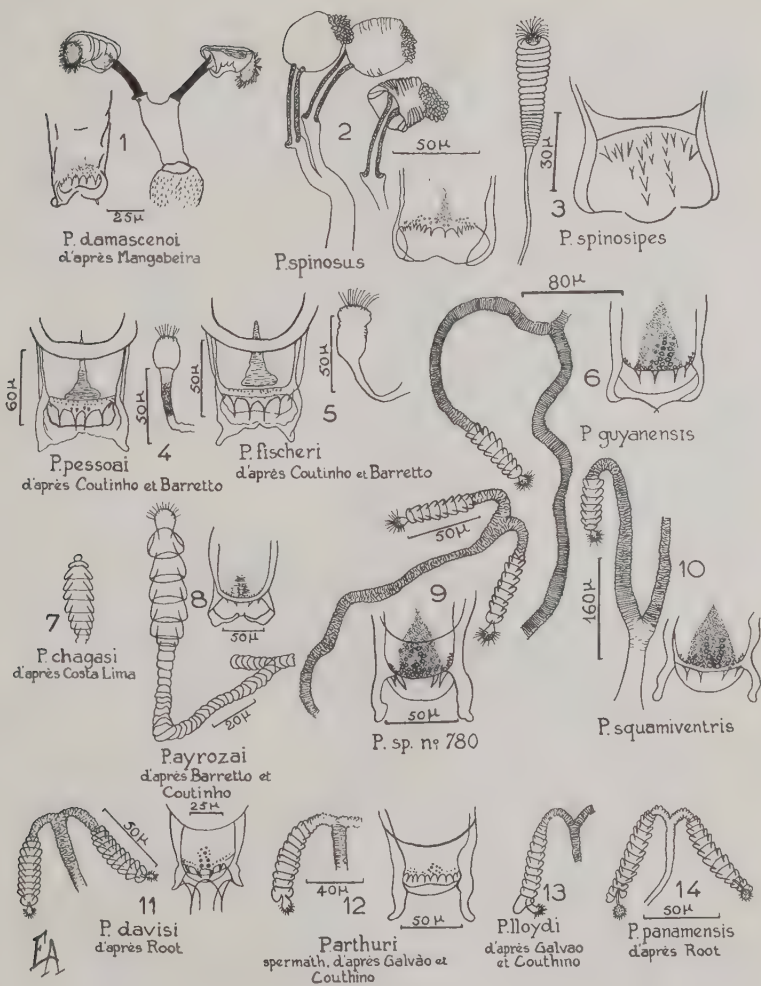 1
25μ
P. damascenoi
d'après Mangabeira
2
50μ
P. spinosus
30μ
3
P. spinosipes
60μ
50μ
4
P. pessoai
d'après Coutinho et Barretto
50μ
50μ
5
P. fischeri
d'après Coutinho et Barretto
80μ
6
P guyanensis
7
P. chagasi
d'après Costa Lima
8
50μ
20μ
P. ayrozai
d'après Barretto et
Coutinho
50μ
9
50μ
P. sp. nº 780
10
160μ
P. squamiventris
50μ
25μ
11
P. davisi
d'après Root
40μ
12
50μ
P. arthuri
spermath. d'après Galvào et
Couthino
13
P. lloydi
d'après Galvao
et Couthino
14
50μ
P. panamensis
d'après Root
EA